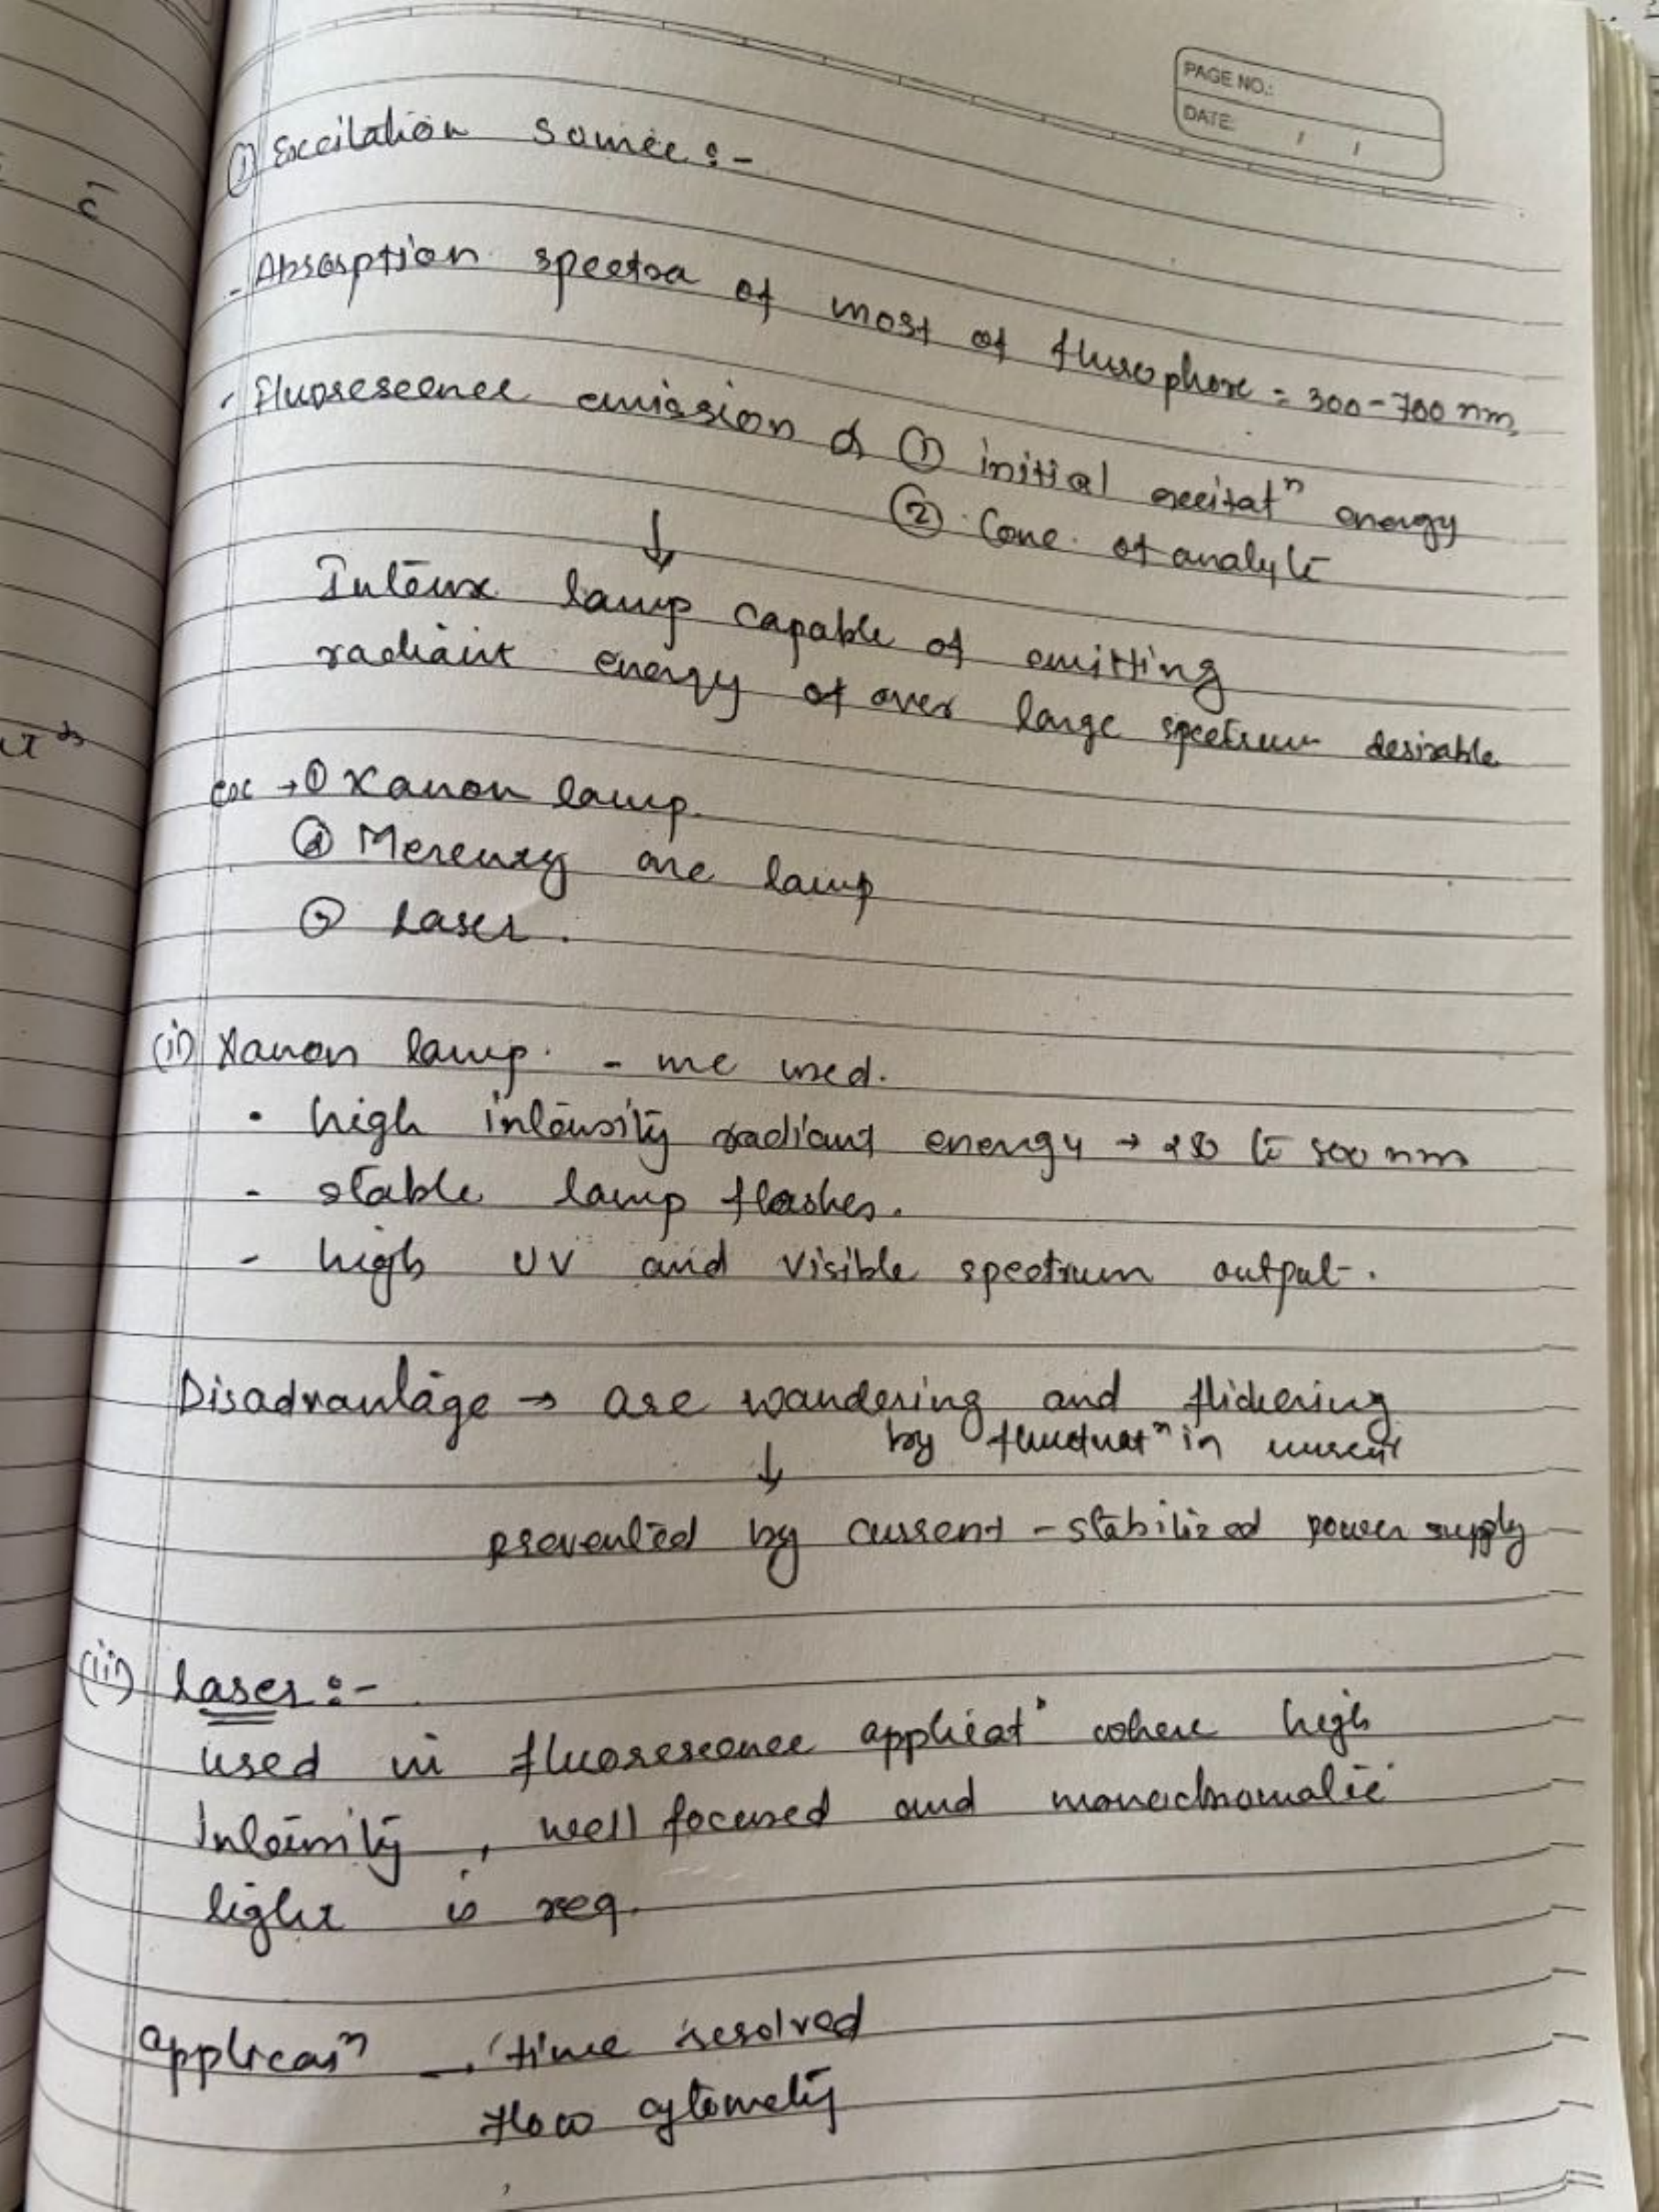 PAGE NO.:
DATE: / /
① Excitation source :-
- Absorption spectra of most of flurophore = 300-700 nm,
- Fluorescence emission α ① initial excitatⁿ energy
② Conc. of analyte
↓
Intense lamp capable of emitting
radiant energy of over large spectrum desirable
ex → ① Xanon lamp.
② Mercury arc lamp
③ Laser.
(i) Xanon lamp. - used.
• high intensity radiant energy → to nm
- stable lamp flashes.
- high UV and visible spectrum output.
Disadvantage → arc wandering and flickering
by fluctuatⁿ in current
↓
prevented by current-stabilized power supply
(ii) laser :-
used in fluorescence applicatⁿ where high
Intensity, well focused and monochromatic
light is req.
applicatⁿ - time resolved
flow cytometry